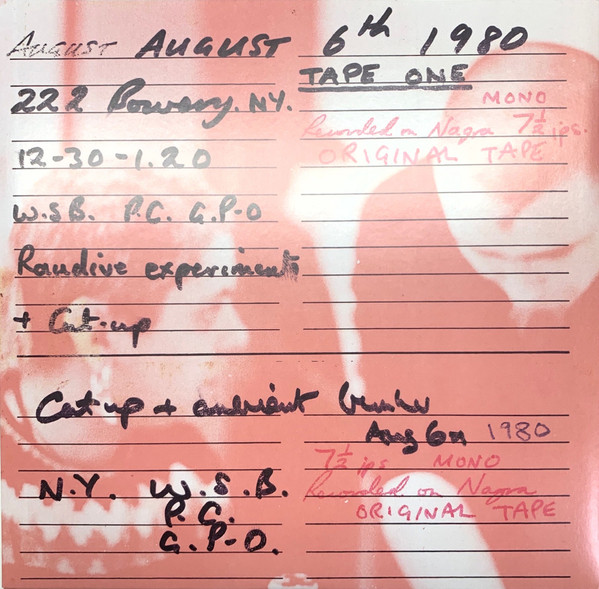 August AUGUST 6th 1980
TAPE ONE
222 Bowery. NY.
MONO
Recorded on Nagra 7½ ips.
ORIGINAL TAPE
12-30-1.20
W.S.B. P.C. G.P-O
Raudive experiments
+ Cut-up
Cut-up + ambient
Aug 6th 1980
7½ ips MONO
Recorded on Nagra
ORIGINAL TAPE
N.Y. W.S.B.
P.C.
G.P-O.